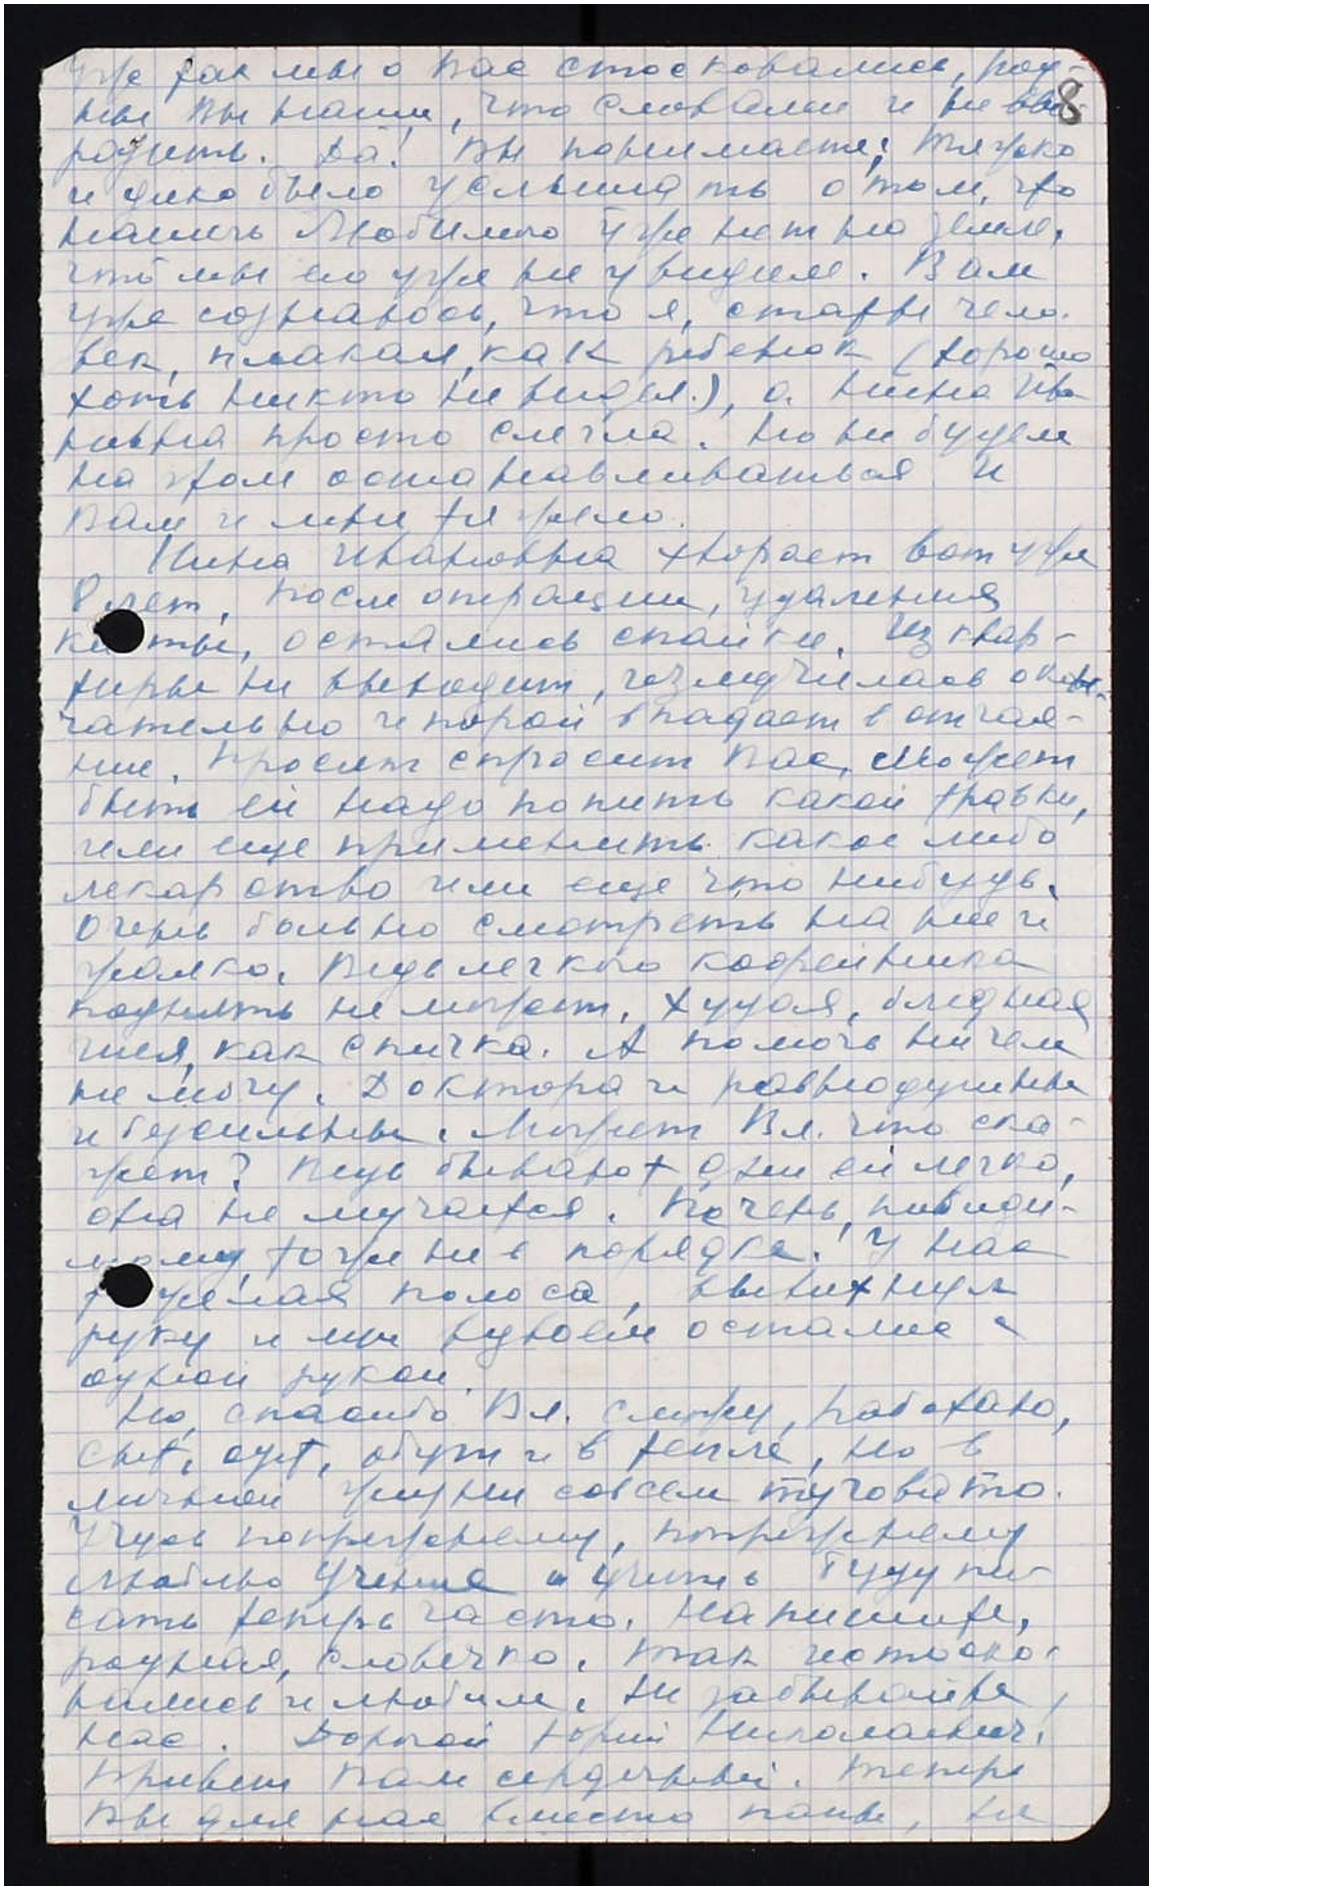 Уже так мы о Вас стосковались, род-
ные Вы наши, что словами и не вы-
8
разить. Да! Вы понимаете, Тяжко
и дико было услышать о том, что
нашего Любимого уже нет на земле,
что мы его уже не увидим. Вам
уже сознаюсь, что я, старый чело-
век, плакал, как ребенок (хорошо
хоть никто не видел.), а Нина Ива
новна просто слегла. Но не будем
на этом останавливаться и
Вам и мне тяжело.
Нина Ивановна хворает вот уже
8 лет. После операции, удаления
ки ты, остались спайки. Из квар-
тиры не выходит, измучилась окон-
чательно и порой впадает в отчая-
ние. Просит спросить Вас, может
быть ей надо попить какой травки,
или еще применить какое либо
лекарство или еще что нибудь.
Очень больно смотреть на нее и
жалко. Ведь легкого кофейника
поднять не может. Худая, бледная
шея, как спичка. А помочь ничем
не могу. Доктора и равнодушны
и бессильны. Может Вл. что ска-
жет? Ведь бывают дни ей легко,
она не мучается. Печень, повиди-
мому, тоже не в порядке. У нас
т желая полоса, вывихнул
руку и мы вдвоем остались с
одной рукой.
Но, спасибо Вл. служу, работаю,
сыт, одет, обут и в тепле, но в
личной жизни совсем туговато.
Учусь попрежнему, попрежнему
люблю Учение и Учитель Буду пи-
сать теперь часто. Напишите,
родная, словечко. Так истоско-
вались и любим. Не забывайте
нас. Дорогой Юрий Николаевич.
Привет Вам сердечный. Теперь
Вы для нас вместо папы, не